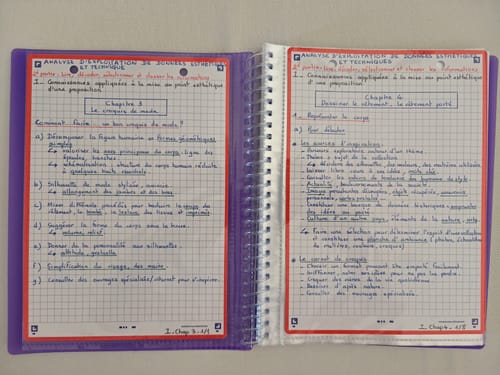 ANALYSE D'EXPLOITATION DE DONNÉES ESTHÉTIQUE
ET TECHNIQUE
2e partie: Lire, décoder, sélectionner et classer les informations
I - Connaissances appliquées à la mise au point esthétique
d'une proposition
Chapitre 3
Le croquis de mode
Comment faire un bon croquis de mode?
a) Décomposer la figure humaine en formes géométriques
simples
↳ valoriser les axes principaux du corps: ligne des
épaules, hanches
↳ schématisation: structure du corps humain réduite
à quelques traits essentiels
b) Silhouette de mode stylisée, amincie
↳ allongement des jambes et des bras
c) Mixer différents procédés pour traduire le corps du
vêtement, le tombé, la texture des tissus et imprimés
d) Suggérer la forme du corps sous la tenue.
↳ volume, relief
e) Donner de la personnalité aux silhouettes.
↳ attitude, gestuelle
f) Simplification du visage, des mains.
g) Consulter des ouvrages spécialisés / internet pour s'inspirer.
I. Chap 3 - 1/1
ANALYSE D'EXPLOITATION DE DONNÉES ESTHÉTIQUE
ET TECHNIQUE
2e partie: Lire, décoder, sélectionner et classer les informations
I - Connaissances appliquées à la mise au point esthétique
d'une proposition
Chapitre 4
Dessiner le vêtement, le vêtement porté
1 - Représenter le corps
a) Pour débuter
Les sources d'inspiration
- Parcours exploratoire autour d'un thème.
- Thème = sujet de la collection
↳ décident silhouette, des couleurs, des matières utilisées
- Laisser libre cours à une idée / mots clé.
- Consulter les cahiers de tendance des bureaux de style.
- Actualité / bouleversements de la société.
- Images personnelles diverses, objets récupérés, souvenirs
personnels, cartes postales.
- Constituer une banque de données historiques = emprunter
des idées au passé
- Culture d'un autre pays, éléments de la nature,
↳ Faire une sélection pour déterminer l'esprit d'une collection
et constituer une planche d'ambiance (photos, échantillon
de matières, couleurs, croquis)
Le carnet de croquis
- Choisir un format pouvant être emporté facilement
- Griffonner, noter ses idées pour ne pas les perdre.
- Croquer des scènes de la vie quotidienne.
- Dessiner d'après nature.
- Consulter des ouvrages spécialisés.
I. Chap 4 - 1/8